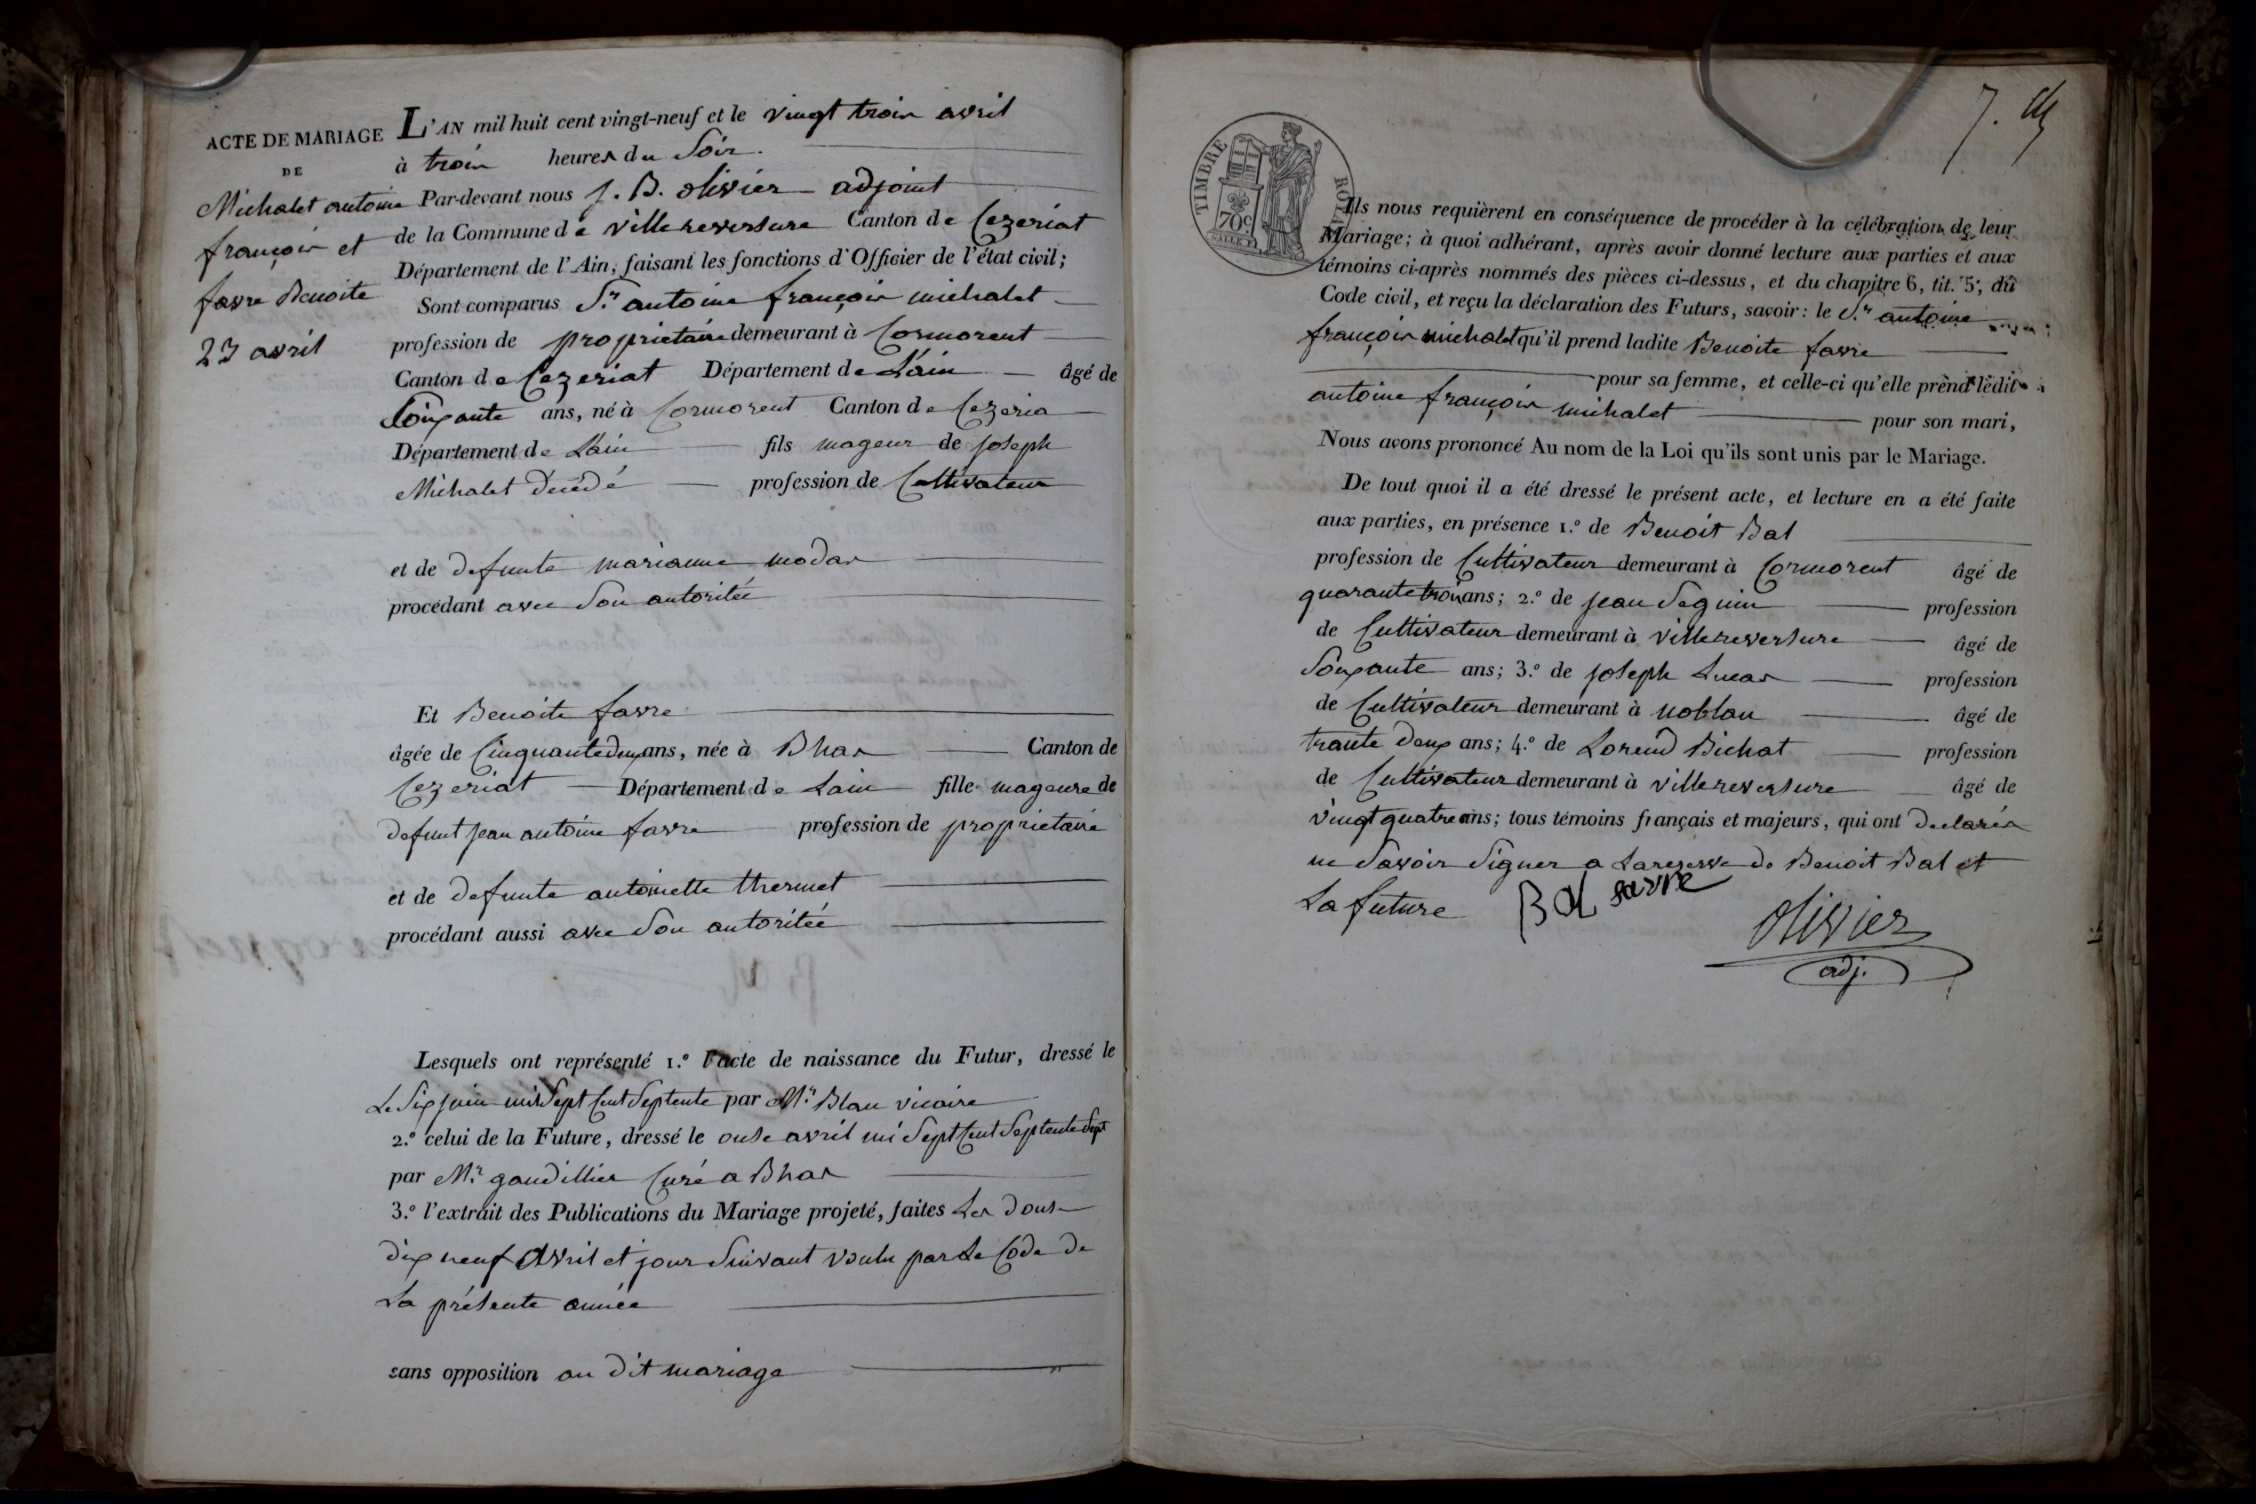 ACTE DE MARIAGE
DE
Michalet antoine
françois et
favre Benoite
23 avril
L'AN mil huit cent vingt-neuf et le vingt trois avril
à trois heures du Soir.
Par-devant nous J. B. olivier adjoint
de la Commune de villereversure Canton de Cezeriat
Département de l'Ain, faisant les fonctions d'Officier de l'état civil;
Sont comparus Sr antoine françois michalet
profession de proprietaire demeurant à Cormorent
Canton de Cezeriat Département de L'ain âgé de
Soixante ans, né à Cormorent Canton de Cezeria
Département de Lain fils mageur de joseph
Michalet décédé profession de Cultivateur
et de defunte marianne modas
procédant avec Son autoritée
Et Benoite favre
âgée de Cinquante deux ans, née à Bhas Canton de
Cezeriat Département de Lain fille mageure de
defunt jean antoine favre profession de proprietaire
et de defunte antoinette thermet
procédant aussi avec Son autoritée
Lesquels ont représenté 1.° l'acte de naissance du Futur, dressé le
Le Six juin mil Sept Cent Septente par Mr. Blan vicaire
2.° celui de la Future, dressé le onse avril mi Sept Cent Septente Sept
par Mr. gaudillier Curé a Bhas
3.° l'extrait des Publications du Mariage projeté, faites Les douse
dix neuf Avril et jour Suivant voulu par Le Code de
La présente année
sans opposition au dit mariage
7. 
TIMBRE ROYAL
70c
Ils nous requièrent en conséquence de procéder à la célébration de leur
Mariage; à quoi adhérant, après avoir donné lecture aux parties et aux
témoins ci-après nommés des pièces ci-dessus, et du chapitre 6, tit. 5, du
Code civil, et reçu la déclaration des Futurs, savoir: le Sr antoine
françois michalet qu'il prend ladite Benoite favre
pour sa femme, et celle-ci qu'elle prend ledit
antoine françois michalet pour son mari,
Nous avons prononcé Au nom de la Loi qu'ils sont unis par le Mariage.
De tout quoi il a été dressé le présent acte, et lecture en a été faite
aux parties, en présence 1.° de Benoit Bal
profession de Cultivateur demeurant à Cormorent âgé de
quarante trois ans; 2.° de jean Seguin profession
de Cultivateur demeurant à villereversure âgé de
Soixante ans; 3.° de joseph Lucas profession
de Cultivateur demeurant à noblan âgé de
trante deux ans; 4.° de Lorend Bichat profession
de Cultivateur demeurant à villereversure âgé de
vingt quatre ans; tous témoins français et majeurs, qui ont declarés
ne Savoir Signer a Lareserve de Benoit Bal et
La future Bal favre
olivier
adj.